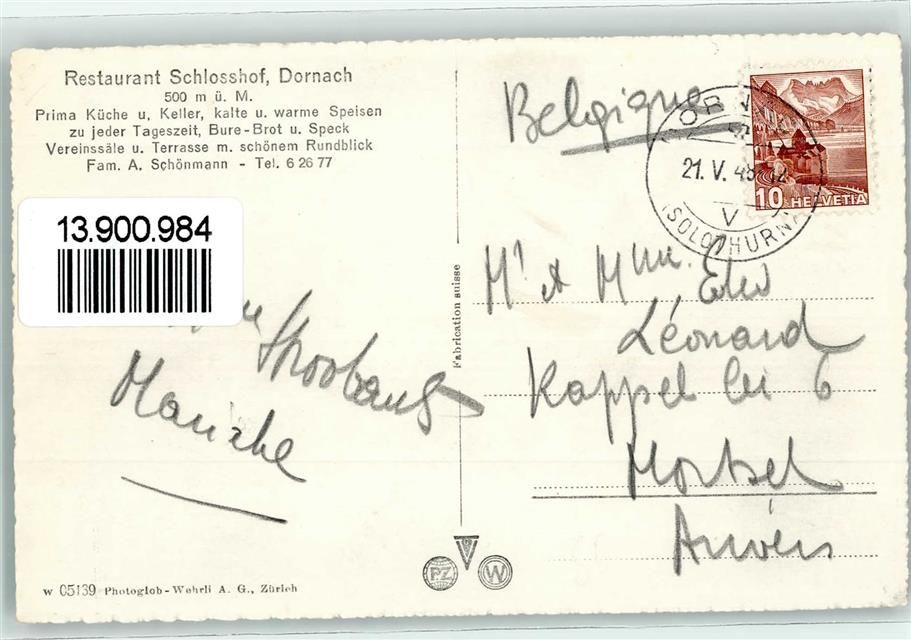 Restaurant Schlosshof, Dornach
500 m ü. M.
Prima Küche u. Keller, kalte u. warme Speisen
zu jeder Tageszeit, Bure-Brot u. Speck
Vereinssäle u. Terrasse m. schönem Rundblick
Fam. A. Schönmann - Tel. 6 26 77
13.900.984
Stroobants
Fabrication suisse
PZ
W
w 05139 Photoglob-Wehrli A. G., Zürich
Belgique
21. V. 48
(SOLOTHURN)
10 HELVETIA
Mr et Mme.
Léonard
Kappel lei 6
Mortsel
Anvers